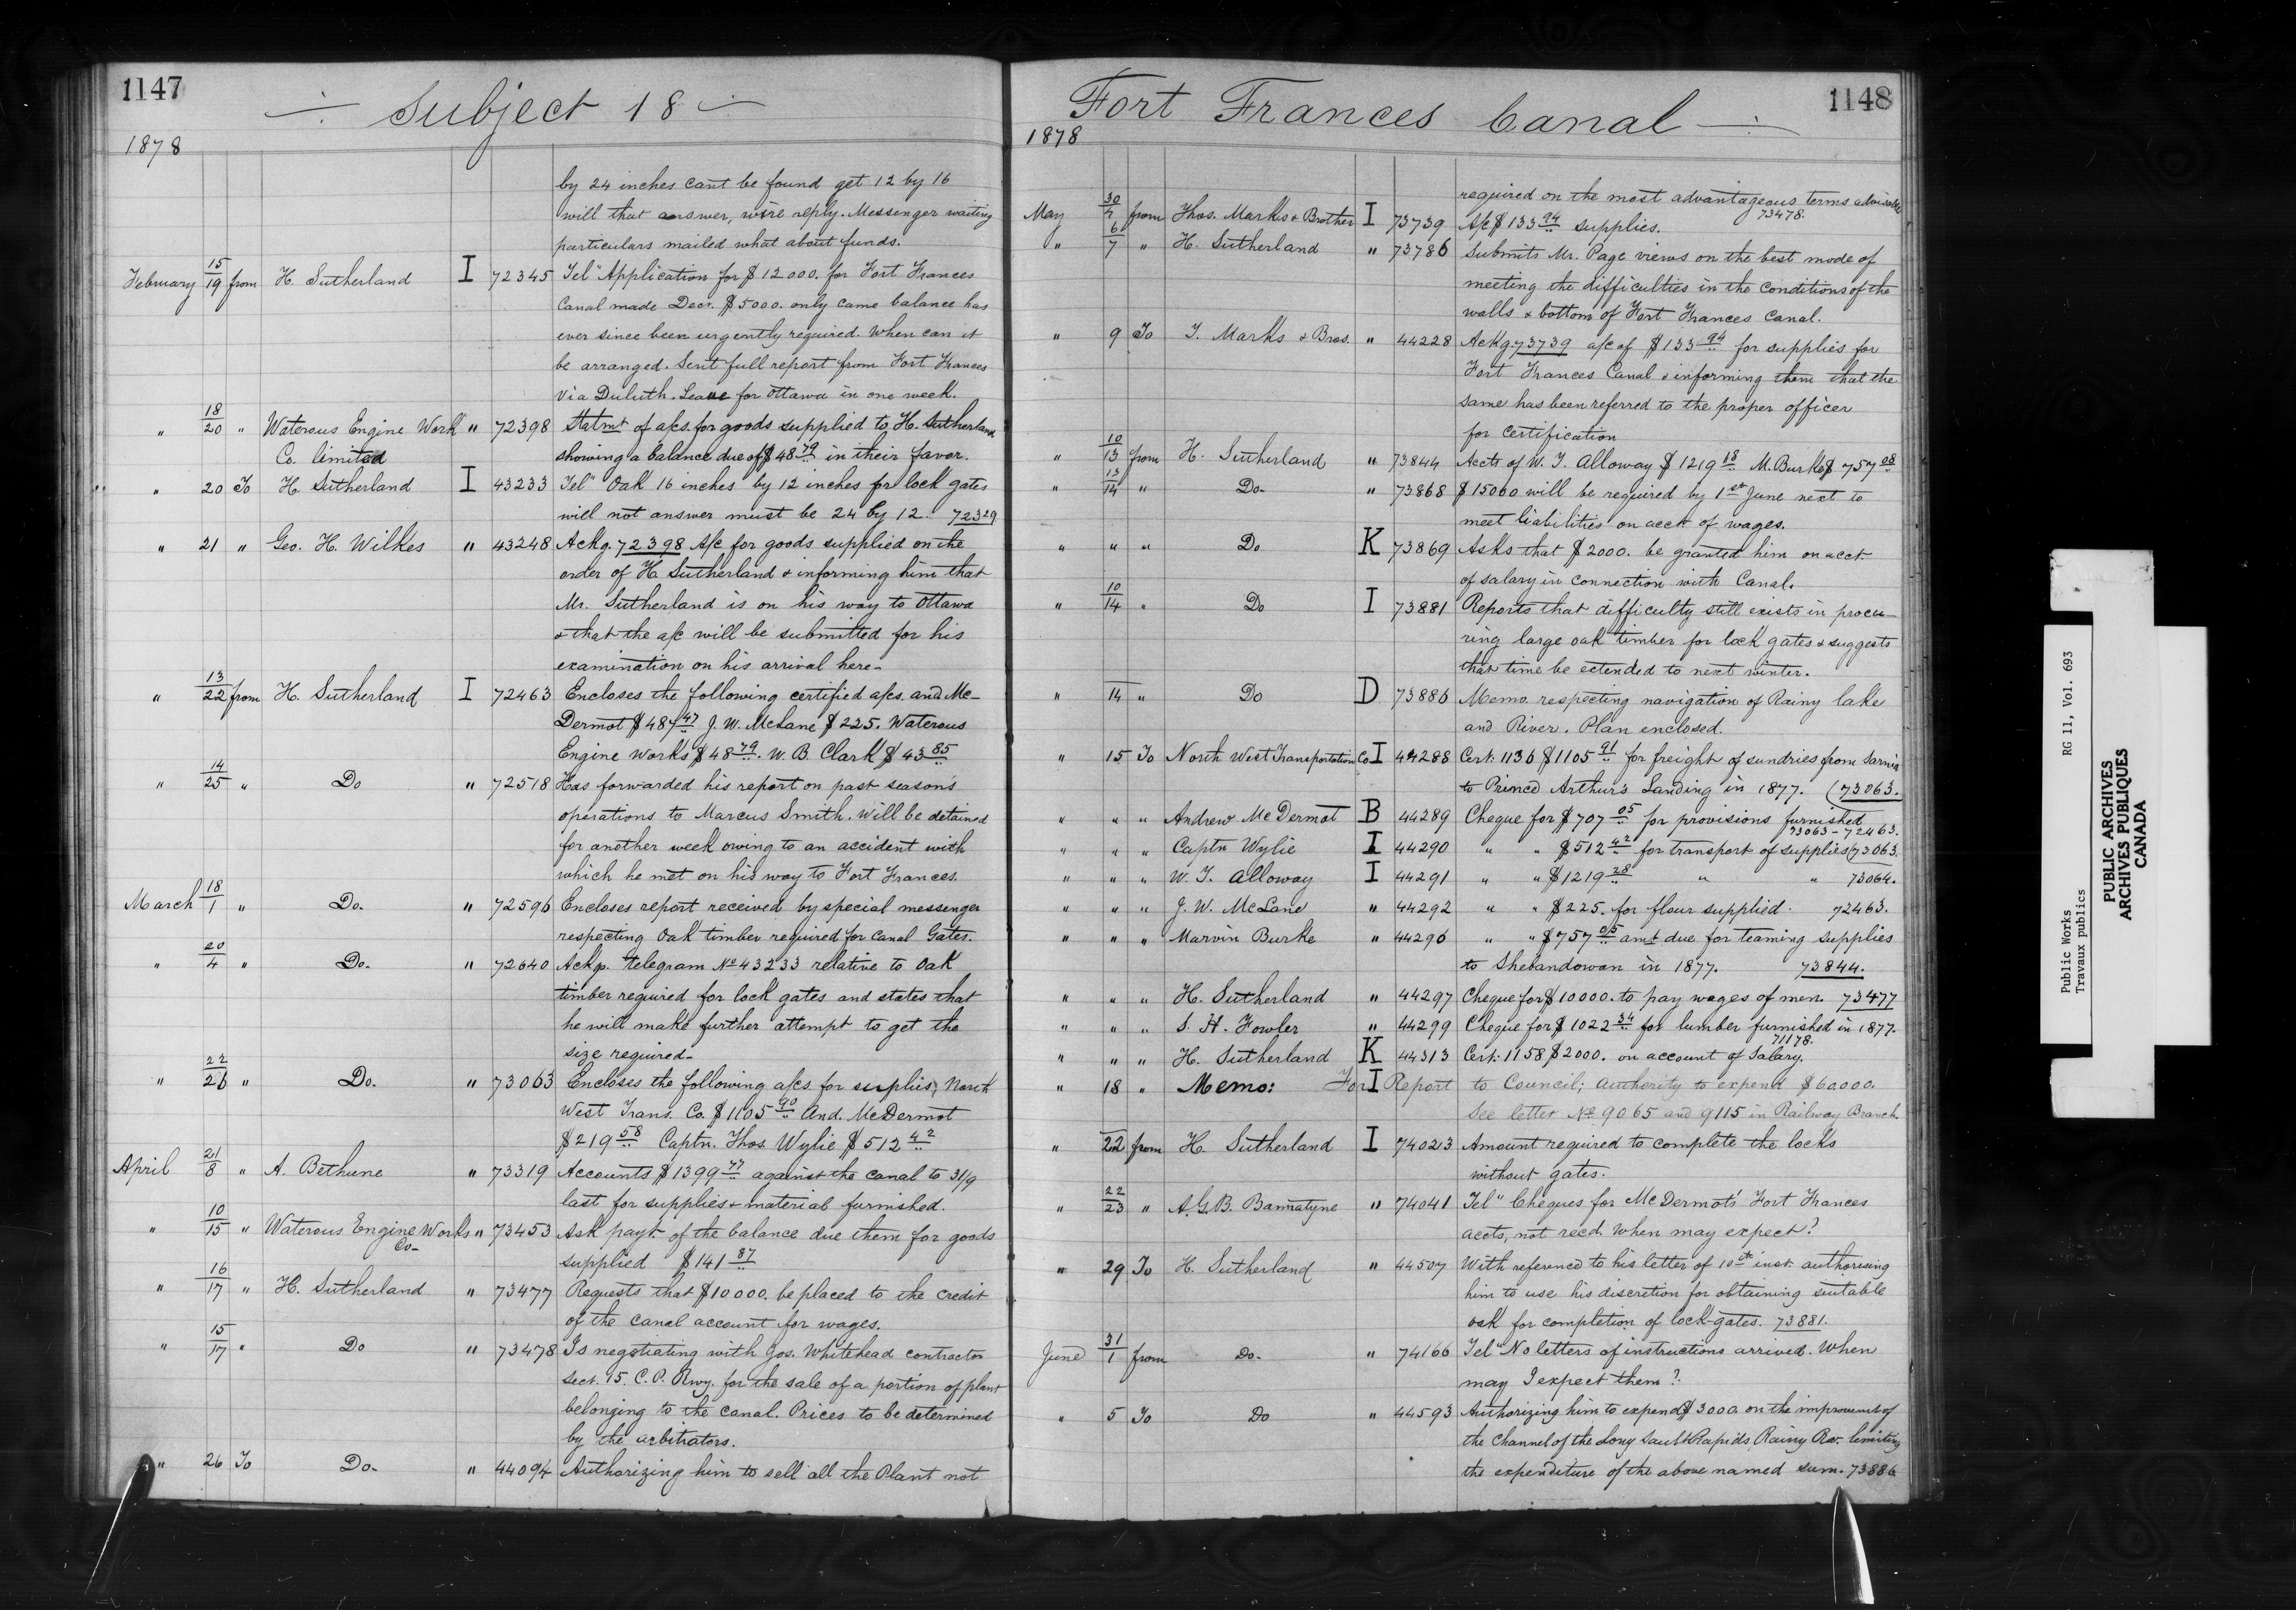 1147
Subject 18
1878
by 24 inches cant be found get 12 by 16
will that answer, wire reply. Messenger waiting
particulars mailed what about funds.
February 15/19 from H. Sutherland I 72345 Tel" Application for $12000. for Fort Frances
Canal made Decr. $5000. only came balance has
ever since been urgently required. When can it
be arranged. Sent full report from Fort Frances
via Duluth. Leave for Ottawa in one week.
" 18/20 " Waterous Engine Work " 72398 Statmt of a/cs. for goods supplied to H. Sutherland
Co. limited showing a balance due of $48 79 in their favor.
" 20 To H. Sutherland I 43233 Tel" Oak 16 inches by 12 inches for lock gates
will not answer must be 24 by 12. 72329
" 21 " Geo. H. Wilkes " 43248 Ackg. 72398 A/c for goods supplied on the
order of H. Sutherland & informing him that
Mr. Sutherland is on his way to Ottawa
& that the a/c will be submitted for his
examination on his arrival here-
" 13/22 from H. Sutherland I 72463 Encloses the following certified a/cs. and Mc-
Dermot $487 47 J. W. McLane $225. Waterous
Engine Works $48 79. W. B. Clark $43 85
" 14/25 " Do " 72518 Has forwarded his report on past season's
operations to Marcus Smith. Will be detained
for another week owing to an accident with
which he met on his way to Fort Frances.
March 18/1 " Do. " 72596 Encloses report received by special messenger
respecting Oak timber required for Canal Gates.
" 20/4 " Do. " 72640 Ackg. telegram No 43233 relative to Oak
timber required for lock gates and states that
he will make further attempt to get the
size required-
" 22/26 " Do. " 73063 Encloses the following a/cs for supplies, North
West Trans. Co. $1105 90 And. McDermot
$219 58 Captn. Thos. Wylie $512 42
April 21/8 " A. Bethune " 73319 Accounts $1399 77 against the canal to 31/9
last for supplies & material furnished.
" 10/15 " Waterous Engine Works " 73453 Ask payt. of the balance due them for goods
Co- supplied $141 87
" 16/17 " H. Sutherland " 73477 Requests that $10000. be placed to the credit
of the canal account for wages.
" 15/17 " Do " 73478 Is negotiating with Jos. Whitehead contractor
Sect. 15. C. P. Rwy. for the sale of a portion of plant
belonging to the canal. Prices to be determined
by the arbitrators.
" 26 To Do. " 44094 Authorizing him to sell all the Plant not
Fort Frances Canal
1148
1878
required on the most advantageous terms advisable
73478.
May 30/7 from Thos. Marks & Brother I 73739 A/c $133 94 supplies.
" 6/7 " H. Sutherland " 73786 Submits Mr. Page views on the best mode of
meeting the difficulties in the conditions of the
walls & bottom of Fort Frances Canal.
" 9 To T. Marks & Bros. " 44228 Ackg. 73739 a/c of $133 94 for supplies for
Fort Frances Canal & informing them that the
same has been referred to the proper officer
for certification
" 10/13 from H. Sutherland " 73844 Accts of W. T. Alloway $1219 18 M. Burke $757 08
" 13/14 " Do- " 73868 $15000 will be required by 1st June next to
meet liabilities on acct of wages.
" " " Do K 73869 Asks that $2000. be granted him on acct.
of salary in connection with Canal.
" 10/14 " Do I 73881 Reports that difficulty still exists in procu-
ring large oak timber for lock gates & suggests
that time be extended to next winter.
" 14 " Do D 73886 Memo. respecting navigation of Rainy lake
and River. Plan enclosed.
" 15 To North West Transportation Co I 44288 Cert. 1136 $1105 91 for freight of sundries from Sarnia
to Prince Arthurs Landing in 1877. (73063.
" " " Andrew McDermot B 44289 Cheque for $707 05 for provisions furnished
73063 - 72463.
" " " Captn Wylie I 44290 " " $512 42 for transport of supplies (73063.
" " " W. T. Alloway I 44291 " " $1219 28 " " 73064.
" " " J. W. McLane " 44292 " " $225. for flour supplied. 72463.
" " " Marvin Burke " 44296 " " $757 05 amt due for teaming supplies
to Shebandowan in 1877. 73844.
" " " H. Sutherland " 44297 Cheque for $10000. to pay wages of men. 73477
" " " S. H. Fowler " 44299 Cheque for $1022 34 for lumber furnished in 1877.
71178.
" " " H. Sutherland K 44313 Cert. 1158 $2000. on account of Salary.
" 18 " Memo: For I Report to Council; Authority to expend $60.000.
See letter No 9065 and 9115 in Railway Branch
" 22 from H. Sutherland I 74023 Amount required to complete the locks
without gates.
" 22/23 " A. G. B. Bannatyne " 74041 Tel" Cheques for McDermots' Fort Frances
accts, not recd. When may expect?
" 29 To H. Sutherland " 44507 With reference to his letter of 10th inst. authorising
him to use his discretion for obtaining suitable
oak for completion of lock-gates. 73881.
June 31/1 from Do. " 74166 Tel" No letters of instructions arrived. When
may I expect them?
" 5 To Do " 44593 Authorizing him to expend $3000. on the improvemt of
the channel of the Long Sault Rapids Rainy Rv. limiting
the expenditure of the above named sum. 73886
Public Works RG 11, Vol. 693
Travaux publics
PUBLIC ARCHIVES
ARCHIVES PUBLIQUES
CANADA